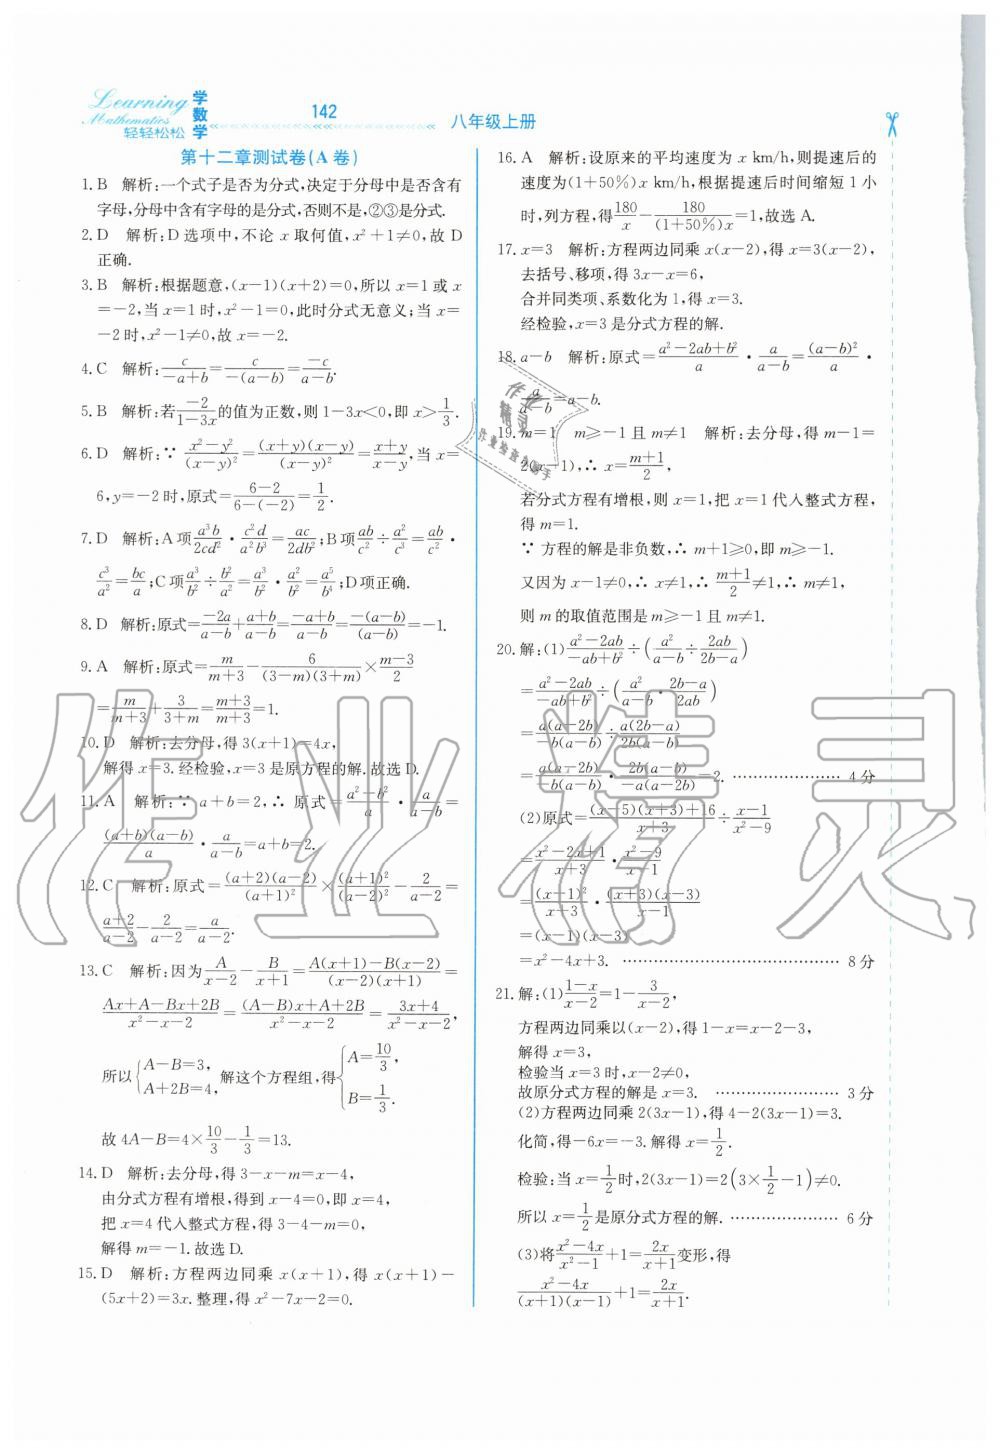 Learning
Mathematics
轻轻松松
学数学
142
八年级上册
第十二章测试卷(A 卷)
1. B 解析:一个式子是否为分式,决定于分母中是否含有
字母,分母中含有字母的是分式,否则不是,②③是分式.
2. D 解析:D 选项中,不论 x 取何值,x²+1≠0,故 D
正确.
3. B 解析:根据题意,(x-1)(x+2)=0,所以 x=1 或 x
=-2,当 x=1 时,x²-1=0,此时分式无意义;当 x=
-2 时,x²-1≠0,故 x=-2.
4. C 解析:c/(-a+b)=c/(-(a-b))=(-c)/(a-b).
5. B 解析:若(-2)/(1-3x)的值为正数,则 1-3x<0,即 x>1/3.
6. D 解析:∵(x²-y²)/(x-y)²=(x+y)(x-y)/(x-y)²=(x+y)/(x-y),当 x=
6,y=-2 时,原式=(6-2)/(6-(-2))=1/2.
7. D 解析:A 项 a³b/2cd²·c²d/a²b³=ac/2db²;B 项 ab/c²÷a²/c³=ab/c²·
c³/a²=bc/a;C 项 a³/b²÷b²/a²=a³/b²·a²/b²=a⁵/b⁴;D 项正确.
8. D 解析:原式=(-2a)/(a-b)+(a+b)/(a-b)=(-a+b)/(a-b)=(-(a-b))/(a-b)=-1.
9. A 解析:原式=m/(m+3)-6/((3-m)(3+m))×(m-3)/2
=m/(m+3)+3/(3+m)=(m+3)/(m+3)=1.
10. D 解析:去分母,得 3(x+1)=4x,
解得 x=3.经检验,x=3 是原方程的解.故选 D.
11. A 解析:∵a+b=2,∴原式=(a²-b²)/a·a/(a-b)=
(a+b)(a-b)/a·a/(a-b)=a+b=2.
12. C 解析:原式=(a+2)(a-2)/(a+1)²×(a+1)²/(a-2)²-2/(a-2)=
(a+2)/(a-2)-2/(a-2)=a/(a-2).
13. C 解析:因为A/(x-2)-B/(x+1)=(A(x+1)-B(x-2))/((x-2)(x+1))=
(Ax+A-Bx+2B)/(x²-x-2)=((A-B)x+A+2B)/(x²-x-2)=(3x+4)/(x²-x-2),
所以{A-B=3, A+2B=4, 解这个方程组,得{A=10/3, B=1/3.
故 4A-B=4×10/3-1/3=13.
14. D 解析:去分母,得 3-x-m=x-4,
由分式方程有增根,得到 x-4=0,即 x=4,
把 x=4 代入整式方程,得 3-4-m=0,
解得 m=-1.故选 D.
15. D 解析:方程两边同乘 x(x+1),得 x(x+1)-
(5x+2)=3x.整理,得 x²-7x-2=0.
16. A 解析:设原来的平均速度为 x km/h,则提速后的
速度为(1+50%)x km/h,根据提速后时间缩短 1 小
时,列方程,得180/x-180/((1+50%)x)=1,故选 A.
17. x=3 解析:方程两边同乘 x(x-2),得 x=3(x-2),
去括号、移项,得 3x-x=6,
合并同类项、系数化为 1,得 x=3.
经检验,x=3 是分式方程的解.
18. a-b 解析:原式=(a²-2ab+b²)/a·a/(a-b)=(a-b)²/a·
a/(a-b)=a-b.
19. m=1 m≥-1 且 m≠1 解析:去分母,得 m-1=
2(x-1),∴x=(m+1)/2,
若分式方程有增根,则 x=1,把 x=1 代入整式方程,
得 m=1.
∵方程的解是非负数,∴m+1≥0,即 m≥-1.
又因为 x-1≠0,∴x≠1,∴(m+1)/2≠1,∴m≠1,
则 m 的取值范围是 m≥-1 且 m≠1.
20. 解:(1)(a²-2ab)/(-ab+b²)÷(a²/(a-b)÷2ab/(2b-a))
=(a²-2ab)/(-ab+b²)÷(a²/(a-b)·(2b-a)/2ab)
=a(a-2b)/(-b(a-b))÷a(2b-a)/(2b(a-b))
=a(a-2b)/(-b(a-b))·2b(a-b)/(-a(a-2b))=2. ………………… 4 分
(2)原式=((x-5)(x+3)+16)/(x+3)÷(x-1)/(x²-9)
=(x²-2x+1)/(x+3)·(x²-9)/(x-1)
=(x-1)²/(x+3)·(x+3)(x-3)/(x-1)
=(x-1)(x-3)
=x²-4x+3. ………………………………… 8 分
21. 解:(1)(1-x)/(x-2)=1-3/(x-2),
方程两边同乘以(x-2),得 1-x=x-2-3,
解得 x=3,
检验当 x=3 时,x-2≠0,
故原分式方程的解是 x=3. …………………… 3 分
(2)方程两边同乘 2(3x-1),得 4-2(3x-1)=3.
化简,得-6x=-3.解得 x=1/2.
检验:当 x=1/2时,2(3x-1)=2(3×1/2-1)≠0.
所以 x=1/2是原分式方程的解. ………………… 6 分
(3)将(x²-4x)/(x²-1)+1=2x/(x+1)变形,得
(x²-4x)/((x+1)(x-1))+1=2x/(x+1).
作业精灵